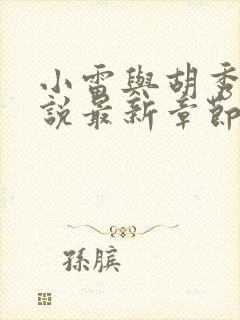 小雷與胡秀
說最新章節
孫臏